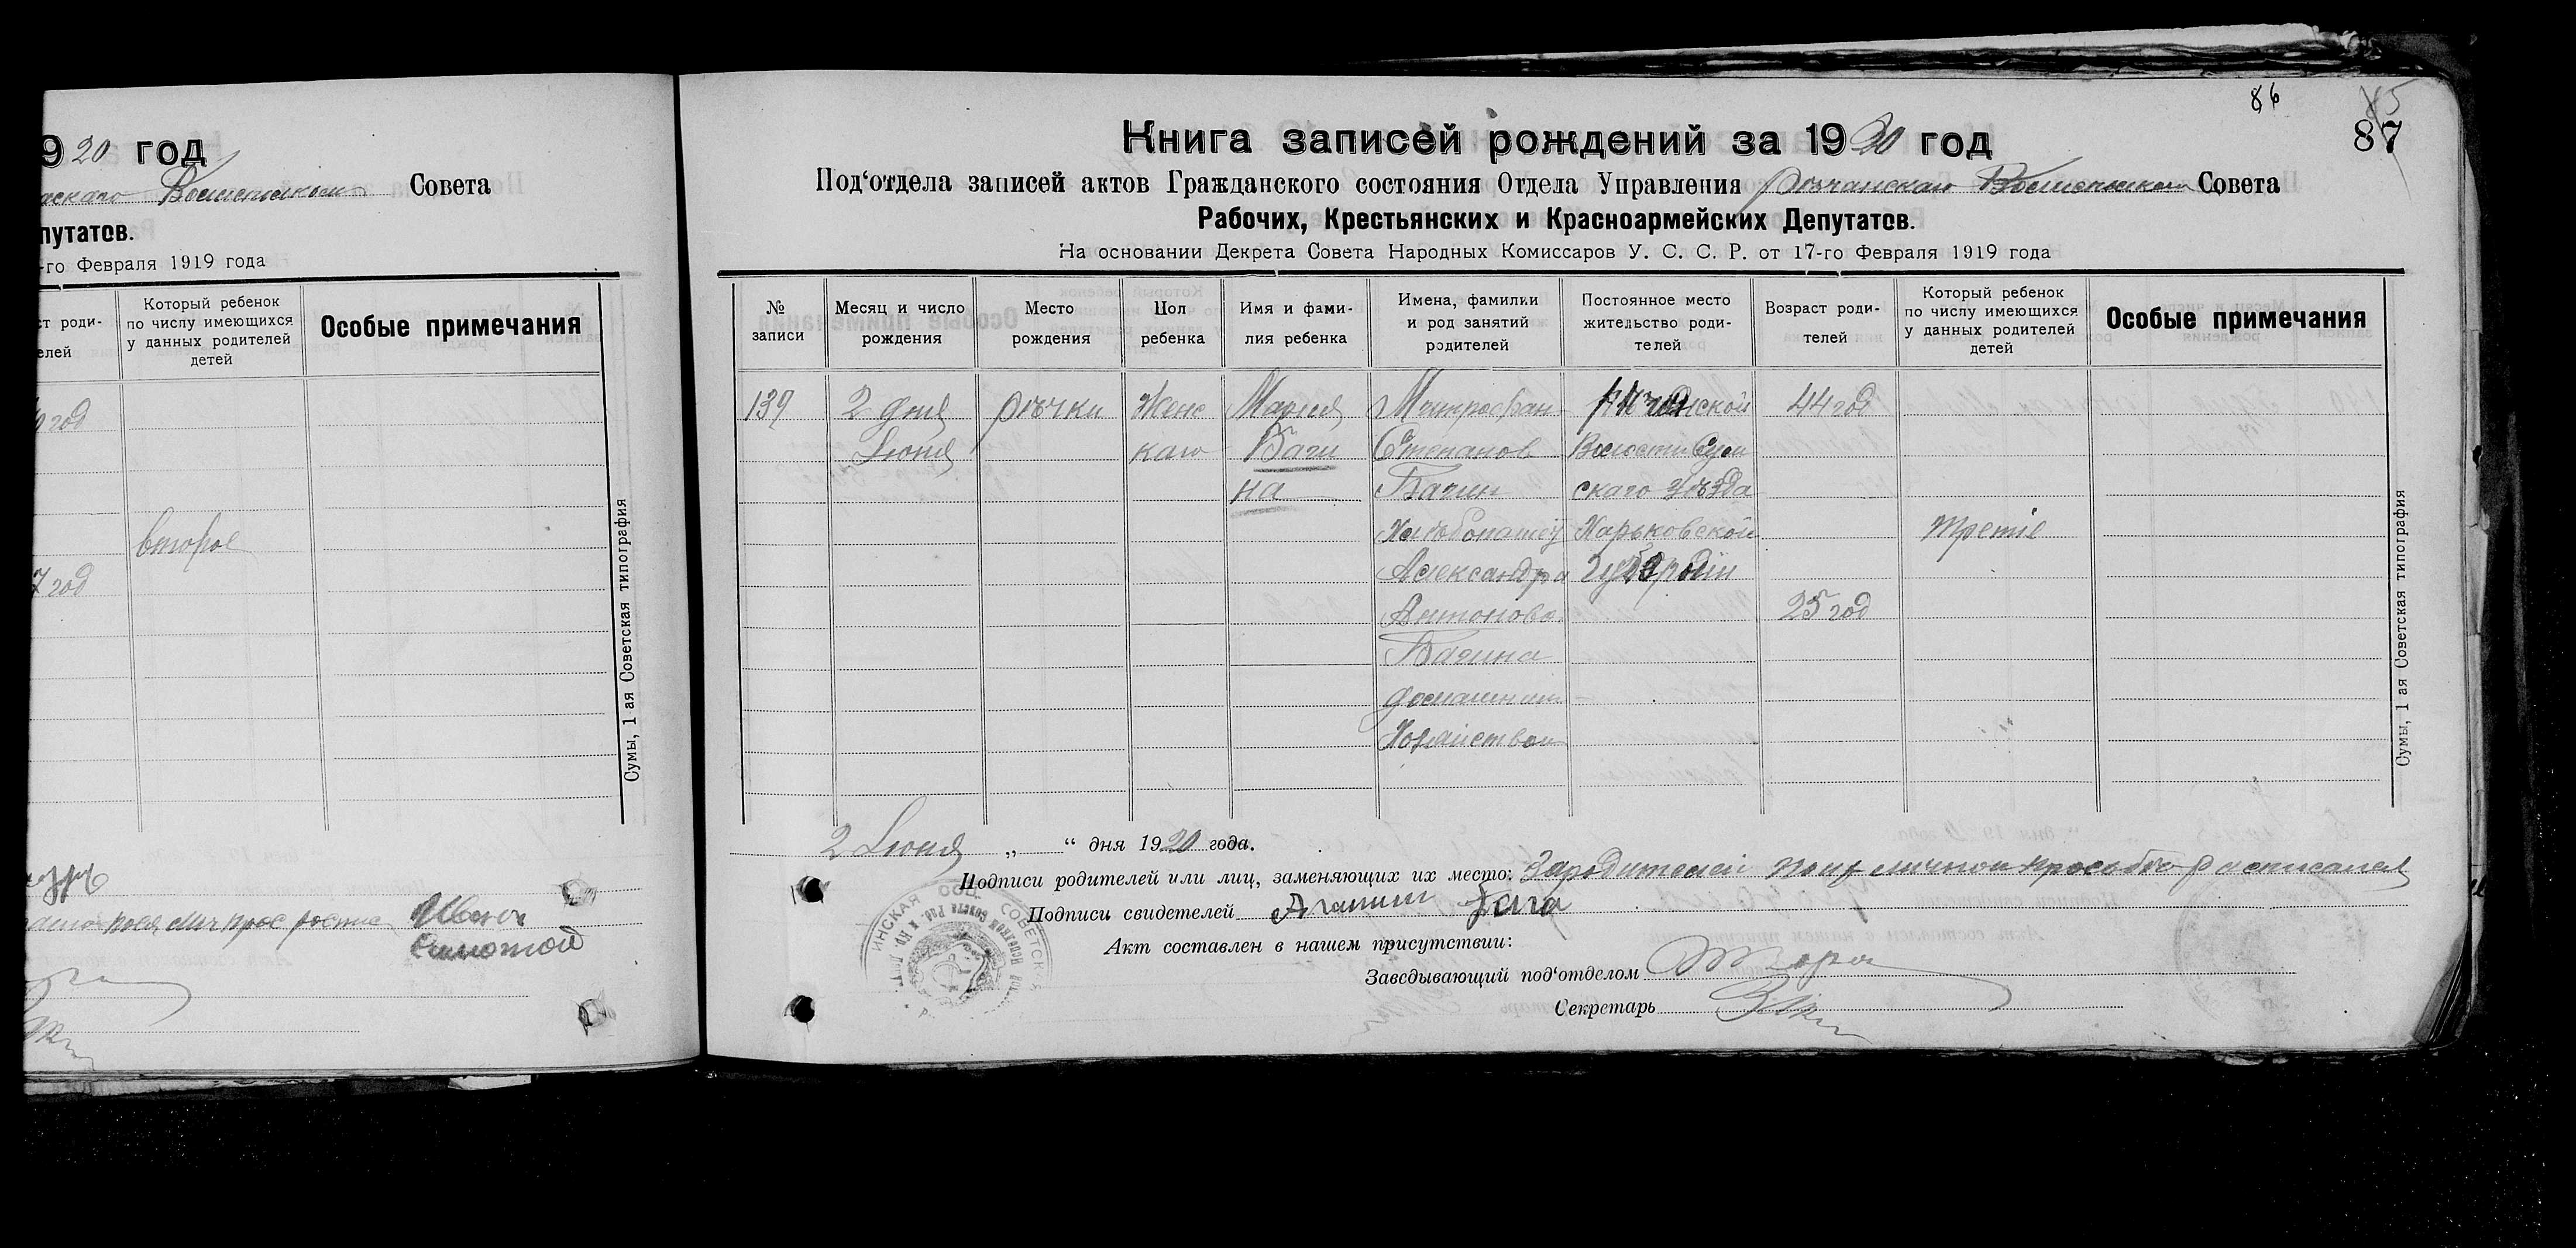 920 год
Совета
путатов.
-го Февраля 1919 года
ст роди-
елей
Который ребенок
по числу имеющихся
у данных родителей
детей
Особые примечания
год
второе
7 год
Сумы, 1-ая Советская типография
Иван
86
85
87
Книга записей рождений за 1920 год
Под‘отдела записей актов Гражданского состояния Отдела Управления Совета
Рабочих, Крестьянских и Красноармейских Депутатов.
На основании Декрета Совета Народных Комиссаров У. С. С. Р. от 17-го Февраля 1919 года
№
записи
Месяц и число
рождения
Место
рождения
Пол
ребенка
Имя и фами-
лия ребенка
Имена, фамилии
и род занятий
родителей
Постоянное место
жительство роди-
телей
Возраст роди-
телей
Который ребенок
по числу имеющихся
у данных родителей
детей
Особые примечания
139
2 дня
Июня
Речки
Женс
каго
Мария
Баги
на
Митрофан
Степанов
Багин
Александра
Антонова
Багина
домашним
Хозяйством
Волости Сум
скаго уезда
Харьковской
44 год
25 год
Третiе
Сумы, 1 ая Советская типография
2 Июня „ “ дня 1920 года.
Подписи родителей или лиц, заменяющих их место: За родителей личной просьбе росписался
Подписи свидетелей
Акт составлен в нашем присутствии:
Заведывающий под‘отделом
Секретарь